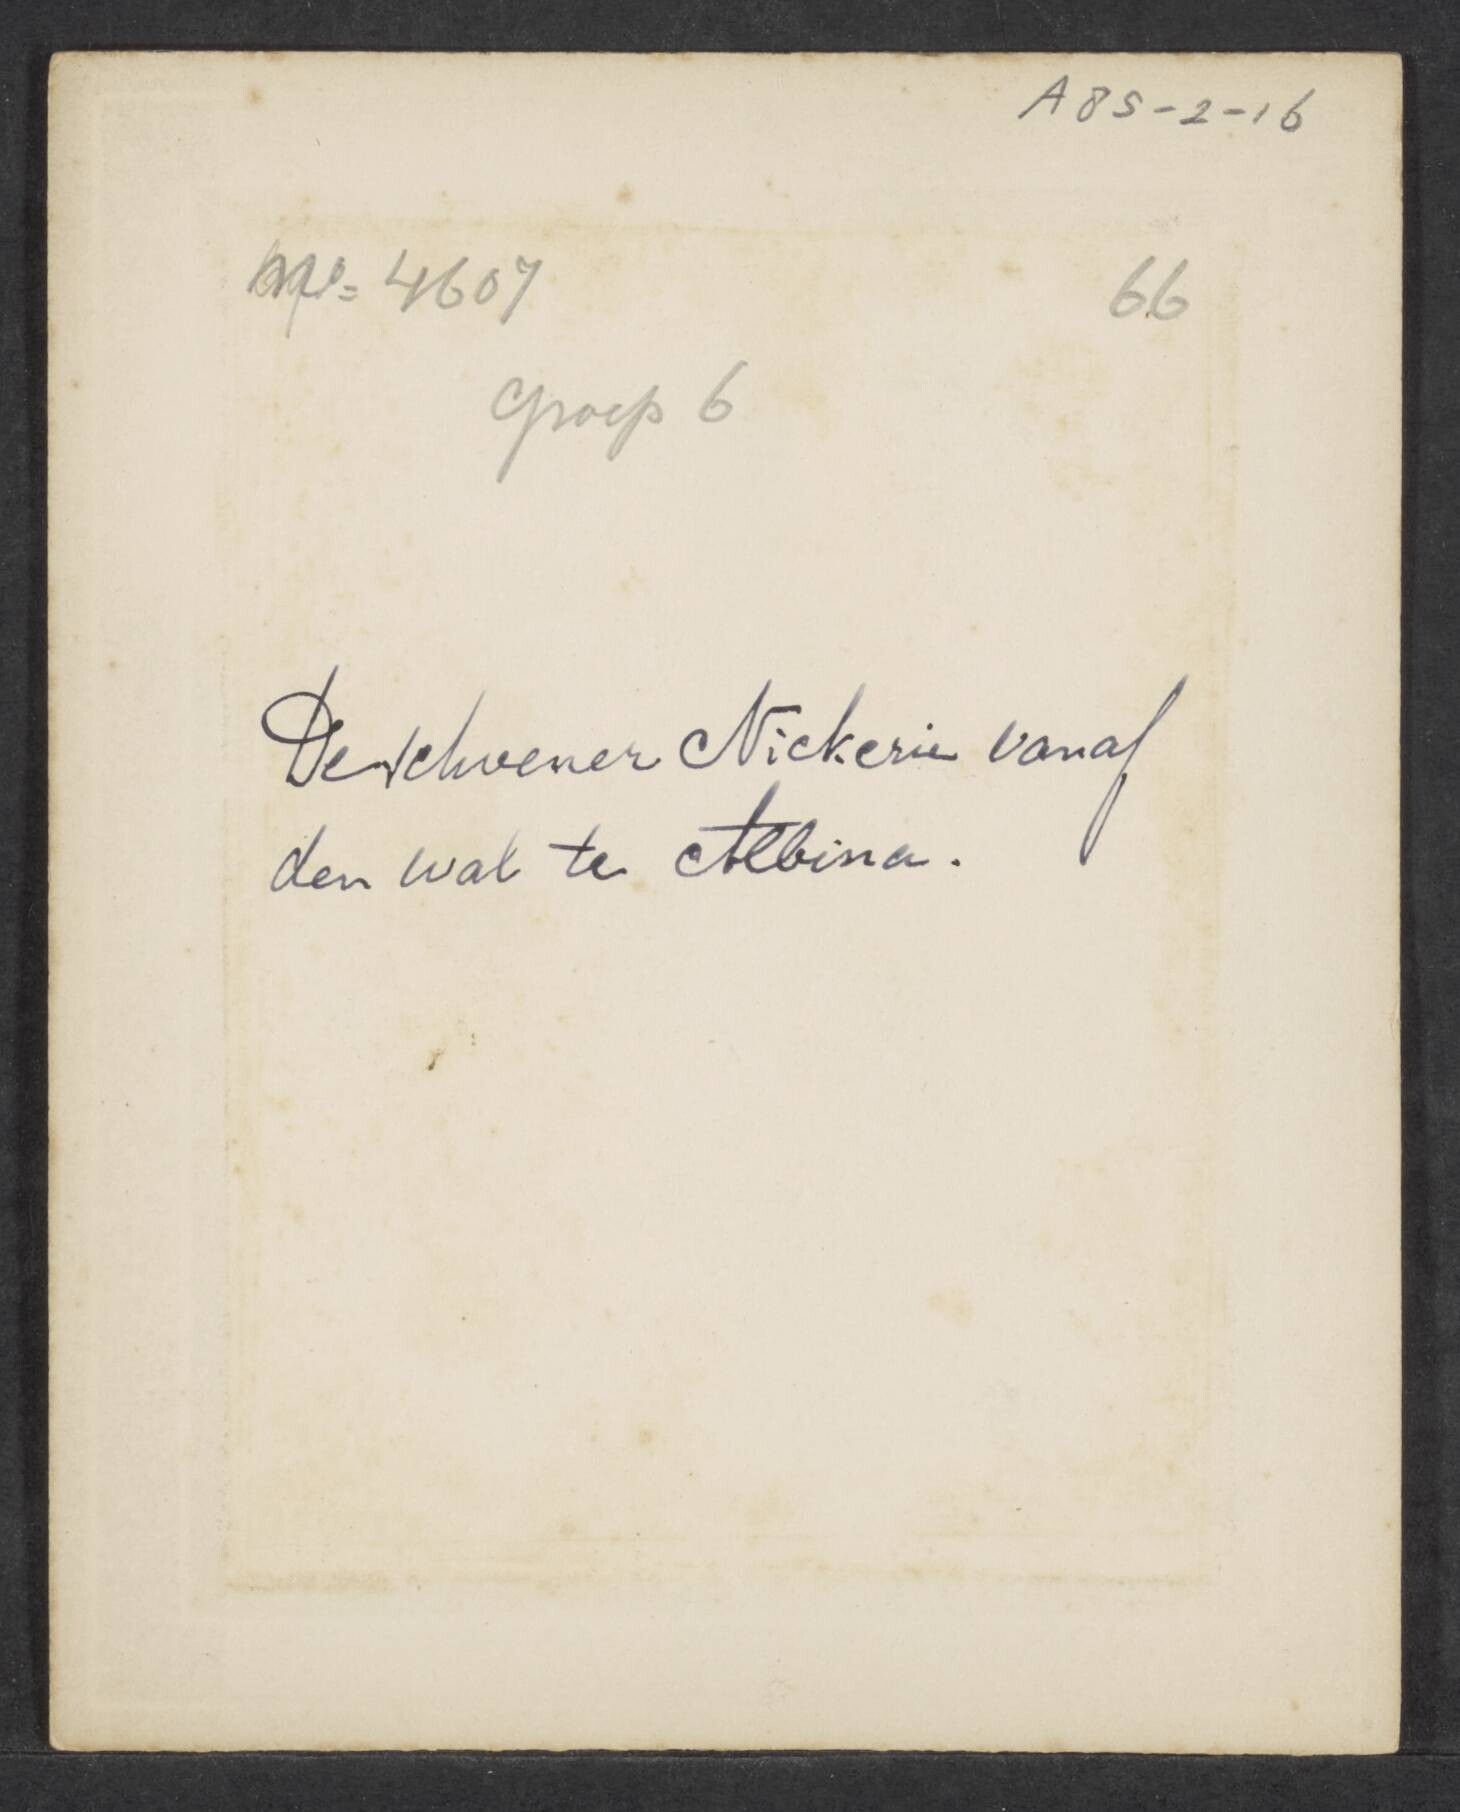 A85-2-16
4607 66
Groep 6
De schoener Nickerie vanaf
den wal te Albina.